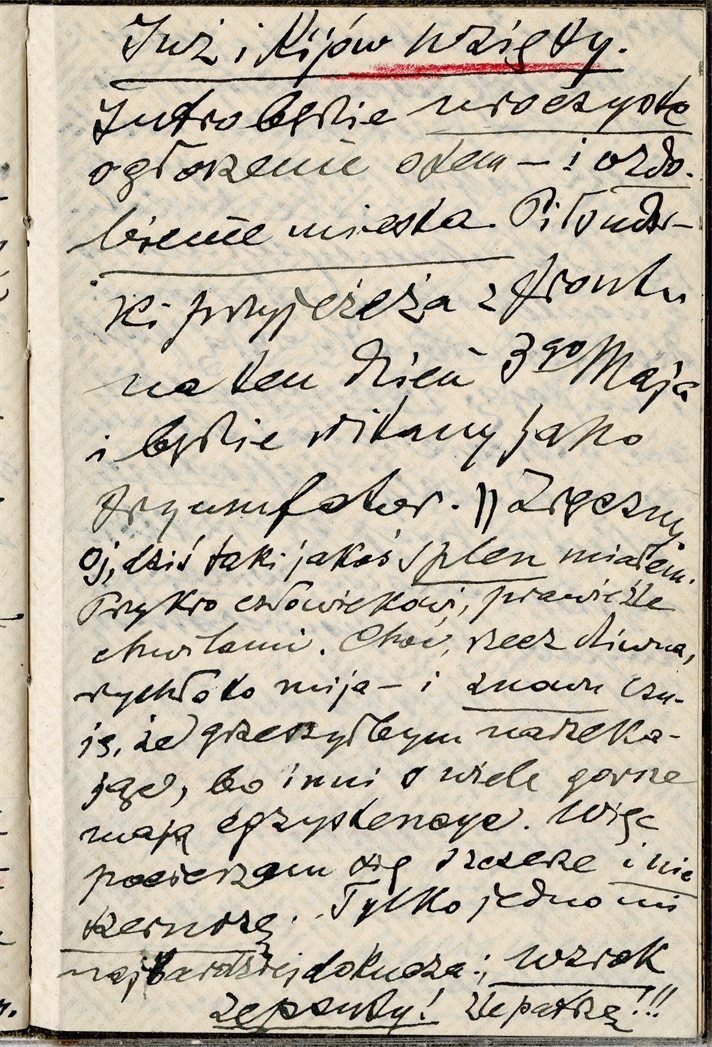 Już i Kijów wzięty.
Jutro będzie uroczyste
ogłoszenie o tem – i ozdo-
bienie miasta. Piłsuds-
ki przyjeżdża z frontu
na ten dzień 3go Maja
i będzie witany jako
tryumfator. || Zręczny
Oj, dziś taki jakoś spleen miałem.
Przykro człowiekowi, prawie źle
chwilami. Choć, rzecz dziwna,
rychło to mija – i znowu czu-
ję, że grzeszyłbym narzeka-
jąc, bo inni o wiele gorsze
mają egzystencye. Więc
pocieszam się szczerze i nie
zernrzę. Tylko jedno mi
najbardziej dokucza: wzrok
zepsuty! Źle patrzę!!!